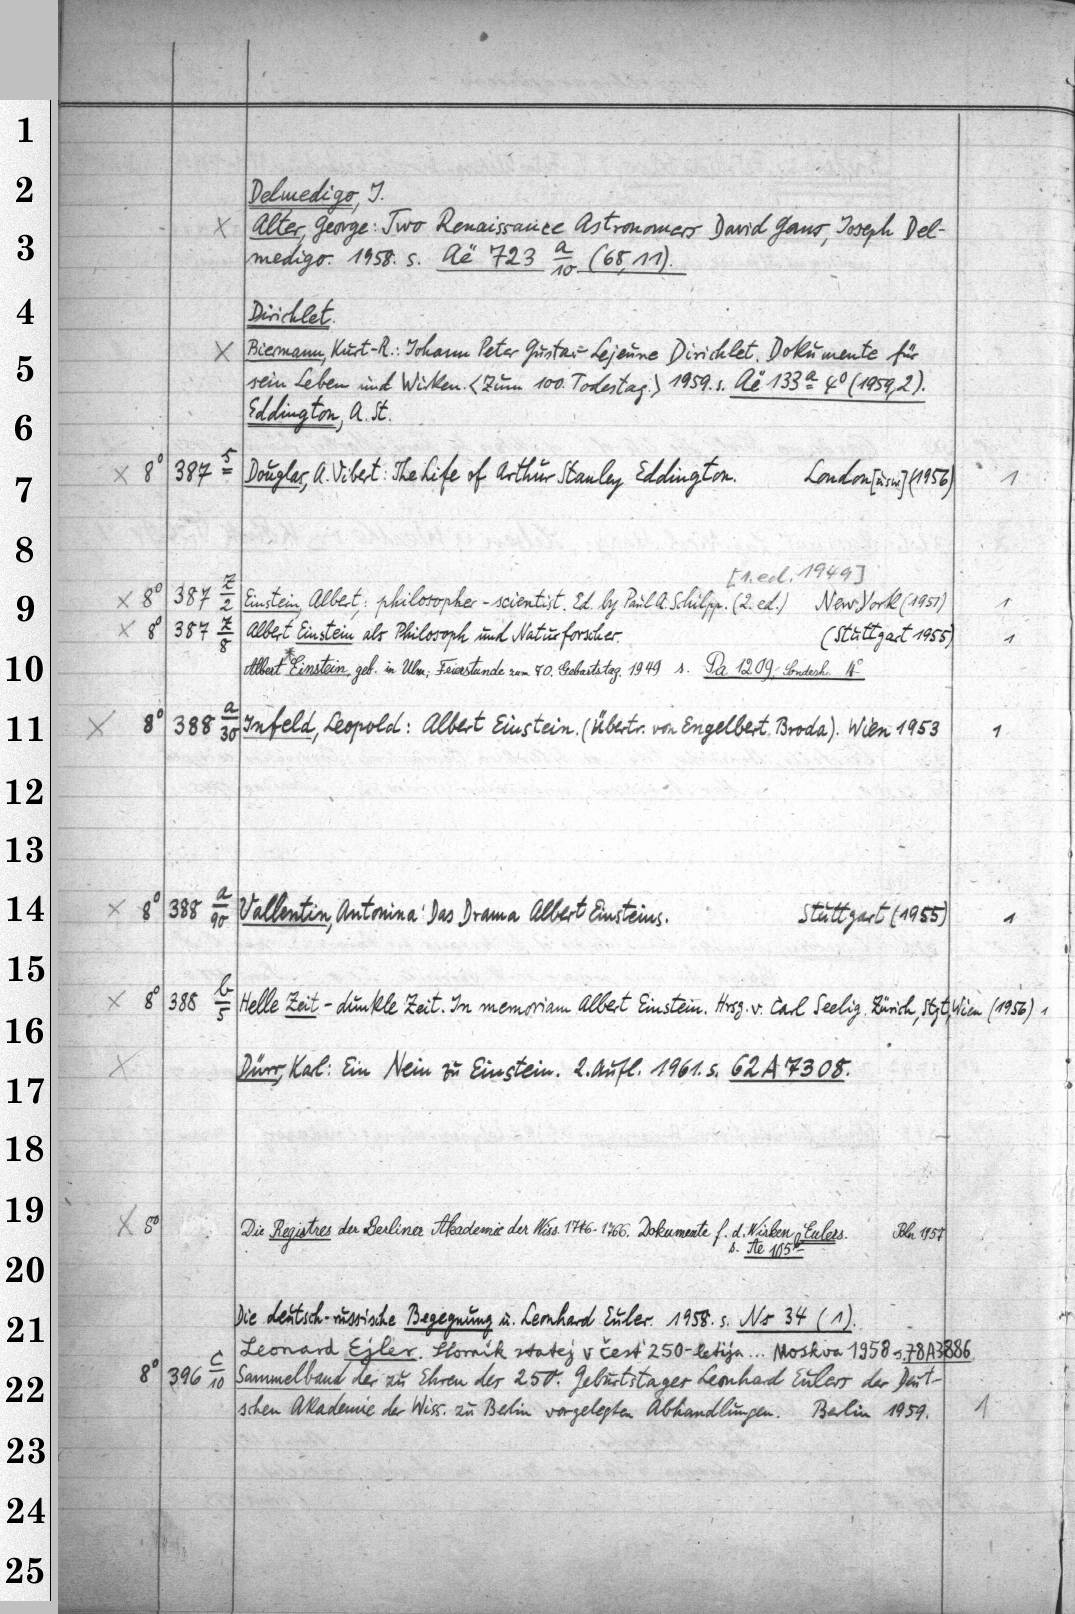 1
2
Delmedigo, J.
× Alter, George: Two Renaissance Astronomers David Gans, Joseph Del-
3
medigo. 1958. s. Aë 723 a/10 (68,11).
4
Dirichlet.
× Biermann, Kurt-R.: Johann Peter Gustav Lejeune Dirichlet. Dokumente für
5
sein Leben und Wirken. <Zum 100. Todestag.> 1959. s. Aë 133 a 4° (1959,2).
6
Eddington, A. St.
7
× 8° 387 5 Douglas, A. Vibert: The Life of Arthur Stanley Eddington. London [usw.] (1956) 1
8
[1. ed. 1949]
9
× 8° 387 z/2 Einstein, Albert: philosopher-scientist. Ed. by Paul A. Schilpp. (2. ed.) New York (1951) 1
× 8° 387 z/8 Albert Einstein als Philosoph und Naturforscher. (Stuttgart 1955) 1
10
Albert Einstein, geb. in Ulm, Feierstunde zum 70. Geburtstag. 1949 s. Pa 1209, Sonderh. 4°
11
× 8° 388 a/30 Infeld, Leopold: Albert Einstein. (Übertr. von Engelbert Broda). Wien 1953 1
12
13
14
× 8° 388 a/90 Vallentin, Antonina: Das Drama Albert Einsteins. Stuttgart (1955) 1
15
× 8° 388 b/5 Helle Zeit - dunkle Zeit. In memoriam Albert Einstein. Hrsg. v. Carl Seelig. Zürich, Stgt, Wien (1956) 1
16
17
× Dürr, Karl: Ein Nein zu Einstein. 2. Aufl. 1961. s. 62 A 7308.
18
19
× 8° Die Registres der Berliner Akademie der Wiss. 1746-1766. Dokumente f. d. Wirken Eulers. Bln 1957
s. Ae 105
20
21
Die deutsch-russische Begegnung u. Leonhard Euler. 1958. s. Ns 34 (1).
Leonard Ejler. Sbornik statej v čest' 250-letija... Moskva 1958 s. 78A3886
22
8° 396 c/10 Sammelband der zu Ehren des 250. Geburtstages Leonhard Eulers der Deut-
schen Akademie der Wiss. zu Berlin vorgelegten Abhandlungen. Berlin 1959. 1
23
24
25